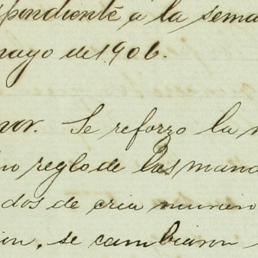 pondiente a la sema
mayo de 1906.
or. Se reforzo la
no reglo de las mana
dos de cria numero
ion, se cambiaron